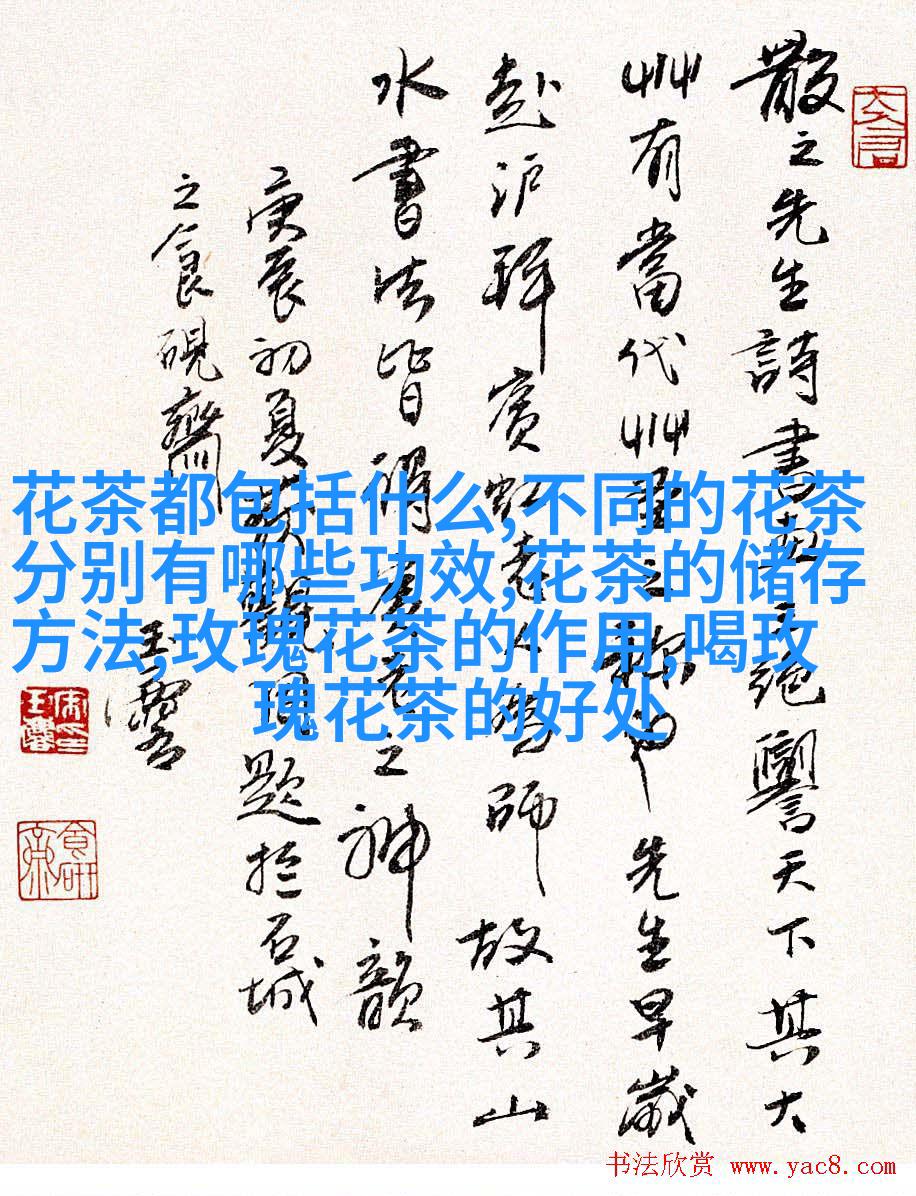 花茶都包括什么,不同的花茶
分别有哪些功效,花茶的储存
方法,玫瑰花茶的作用,喝玫
瑰花茶的好处
散之先生詩書畫三絕譽天下其大
艸有當代艸聖之稱 先生早歲
赴沪拜賓虹老人為師故其山
水書法皆得賓老之神韻
庚辰初夏 觀 題於石城
之食硯齋
書法欣赏 www.yac8.com